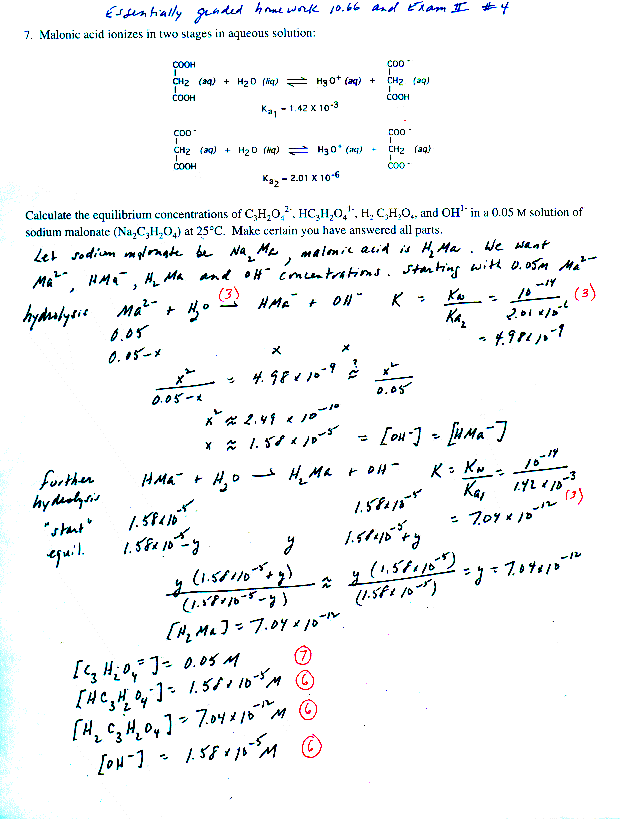 Essentially graded homework 10.66 and Exam II #4
7. Malonic acid ionizes in two stages in aqueous solution:
COOH COO⁻
CH2 (aq) + H2O (liq) ⇌ H3O⁺ (aq) + CH2 (aq)
COOH COOH
Ka1 = 1.42 X 10⁻³
COO⁻ COO⁻
CH2 (aq) + H2O (liq) ⇌ H3O⁺ (aq) + CH2 (aq)
COOH COO⁻
Ka2 = 2.01 X 10⁻⁶
Calculate the equilibrium concentrations of C3H2O4²⁻, HC3H2O4¹⁻, H2 C3H2O4, and OH¹⁻ in a 0.05 M solution of
sodium malonate (Na2C3H2O4) at 25°C. Make certain you have answered all parts.
Let sodium malonate be Na2 Ma, malonic acid is H2 Ma. We want
Ma²⁻, HMa⁻, H2 Ma and OH⁻ concentrations. Starting with 0.05M Ma²⁻
hydrolysis Ma²⁻ + H2O ⇌ (3) HMa⁻ + OH⁻ K = Kw/Ka2 = 10⁻¹⁴/2.01 x 10⁻⁶ (3)
0.05 = 4.98 x 10⁻⁹
0.05-x x x
x²/0.05-x = 4.98 x 10⁻⁹ ≈? x²/0.05
x² ≈ 2.49 x 10⁻¹⁰
x ≈ 1.58 x 10⁻⁵ = [OH⁻] = [HMa⁻]
further HMa⁻ + H2O → H2 Ma + OH⁻ K = Kw/Ka1 = 10⁻¹⁴/1.42 x 10⁻³ (3)
hydrolysis
"start" 1.58x10⁻⁵ 1.58x10⁻⁵ = 7.04 x 10⁻¹²
equil. 1.58x10⁻⁵-y y 1.58x10⁻⁵+y
y (1.58x10⁻⁵+y)/(1.58x10⁻⁵-y) ≈ y (1.58x10⁻⁵)/(1.58x10⁻⁵) = y = 7.04x10⁻¹²
[H2 Ma] = 7.04 x 10⁻¹²
[C3 H2 O4²⁻] = 0.05 M (7)
[HC3H2O4⁻] = 1.58 x 10⁻⁵ M (6)
[H2 C3H2O4] = 7.04 x 10⁻¹² M (6)
[OH⁻] = 1.58 x 10⁻⁵ M (6)